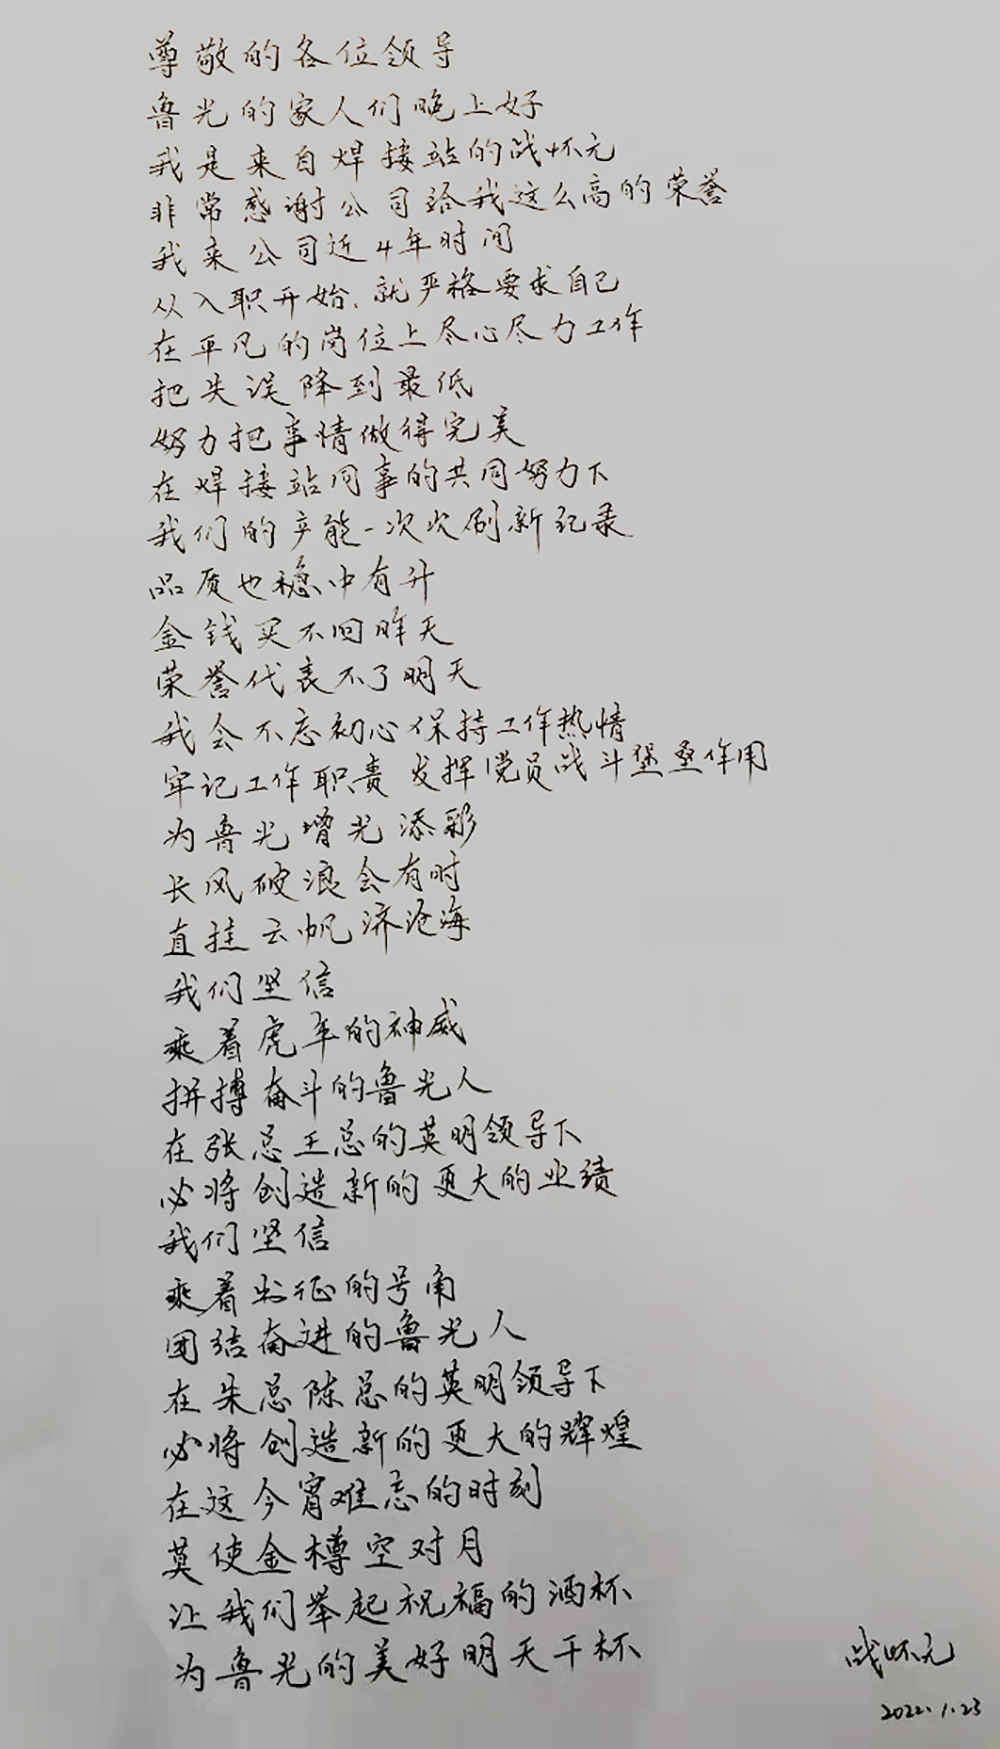 尊敬的各位领导
鲁光的家人们晚上好
我是来自焊接站的战怀元
非常感谢公司给我这么高的荣誉
我来公司近4年时间
从入职开始、就严格要求自己
在平凡的岗位上尽心尽力工作
把失误降到最低
努力把事情做得完美
在焊接站同事的共同努力下
我们的产能一次次刷新纪录
品质也稳中有升
金钱买不回昨天
荣誉代表不了明天
我会不忘初心保持工作热情
牢记工作职责 发挥党员战斗堡垒作用
为鲁光增光添彩
长风破浪会有时
直挂云帆济沧海
我们坚信
乘着虎年的神威
拼搏奋斗的鲁光人
在张总王总的英明领导下
必将创造新的更大的业绩
我们坚信
乘着出征的号角
团结奋进的鲁光人
在朱总陈总的英明领导下
必将创造新的更大的辉煌
在这今宵难忘的时刻
莫使金樽空对月
让我们举起祝福的酒杯
为鲁光的美好明天干杯
战怀元
2022.1.23